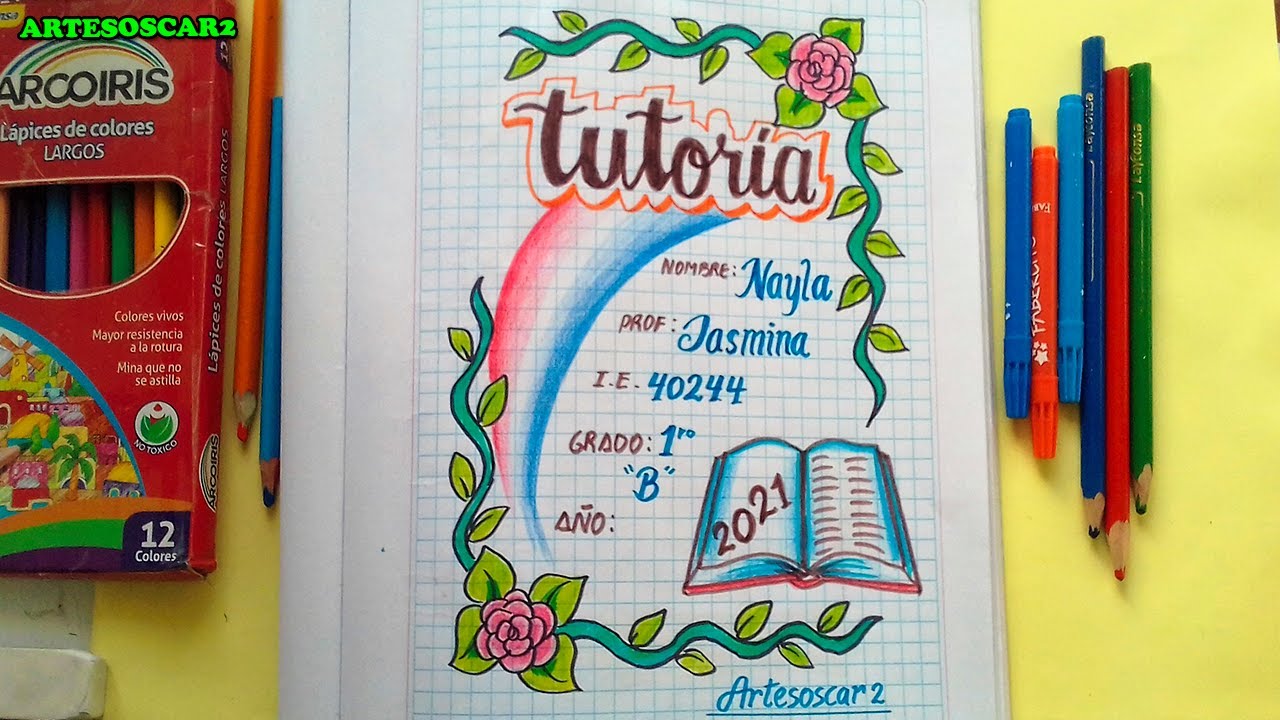 ARTESOSCAR2
ARCOIRIS
Lápices de colores
LARGOS
12
Lápices de colores LARGOS
Colores vivos
Mayor resistencia
a la rotura
Mina que no
se astilla
NO TOXICO
ARCOIRIS
12
Colores
tutoría
NOMBRE: Nayla
PROF: Jasmina
I.E. 40244
GRADO: 1ro
"B"
AÑO:
2021
Artesoscar2
Layconsa
Layconsa